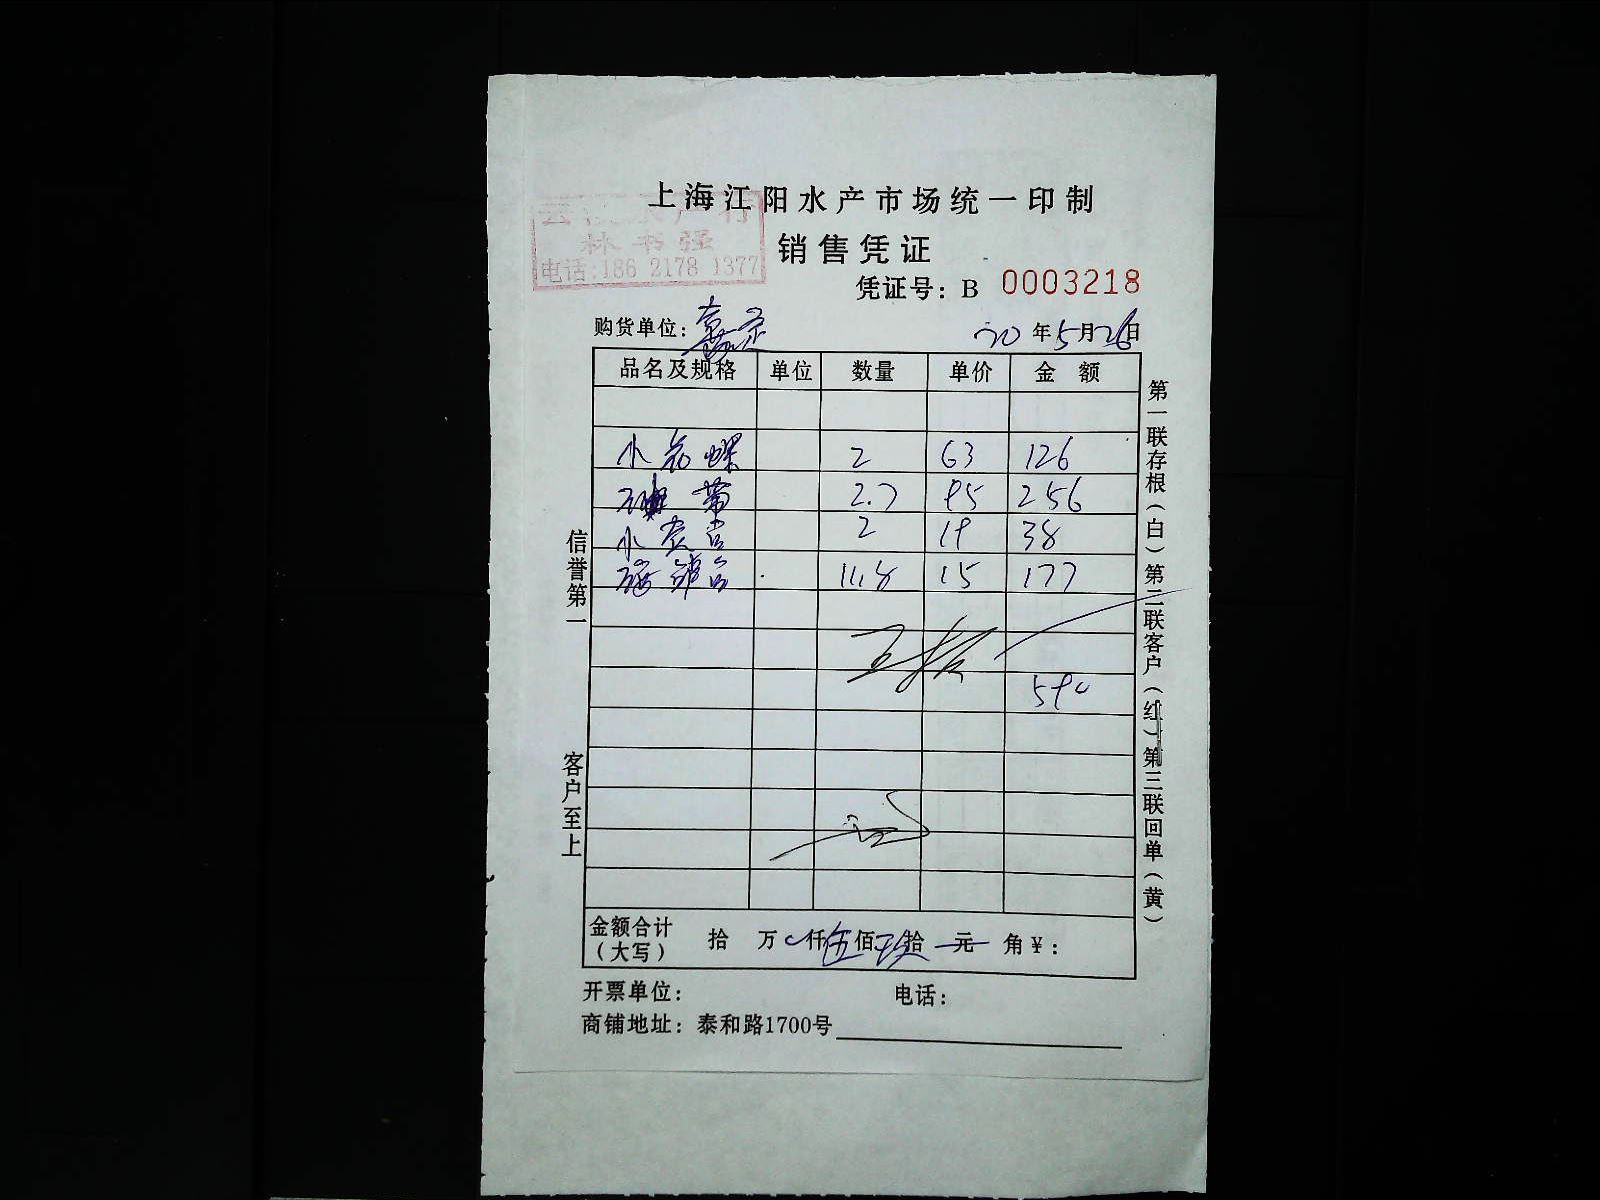 上海江阳水产市场统一印制
水产行
林书强
电话:186 2178 1377
销售凭证
凭证号: B 0003218
购货单位: 20 年 5 月 26 日
品名及规格 单位 数量 单价 金 额
小花螺 2 63 126
带 2.7 95 256
小 2 19 38
11.8 15 177
590
金额合计(大写) 拾 万 仟 伍 佰 玖 拾 元 角 ¥:
开票单位: 电话:
商铺地址: 泰和路1700号
信誉第一
客户至上
第一联存根(白)第二联客户(红)第三联回单(黄)